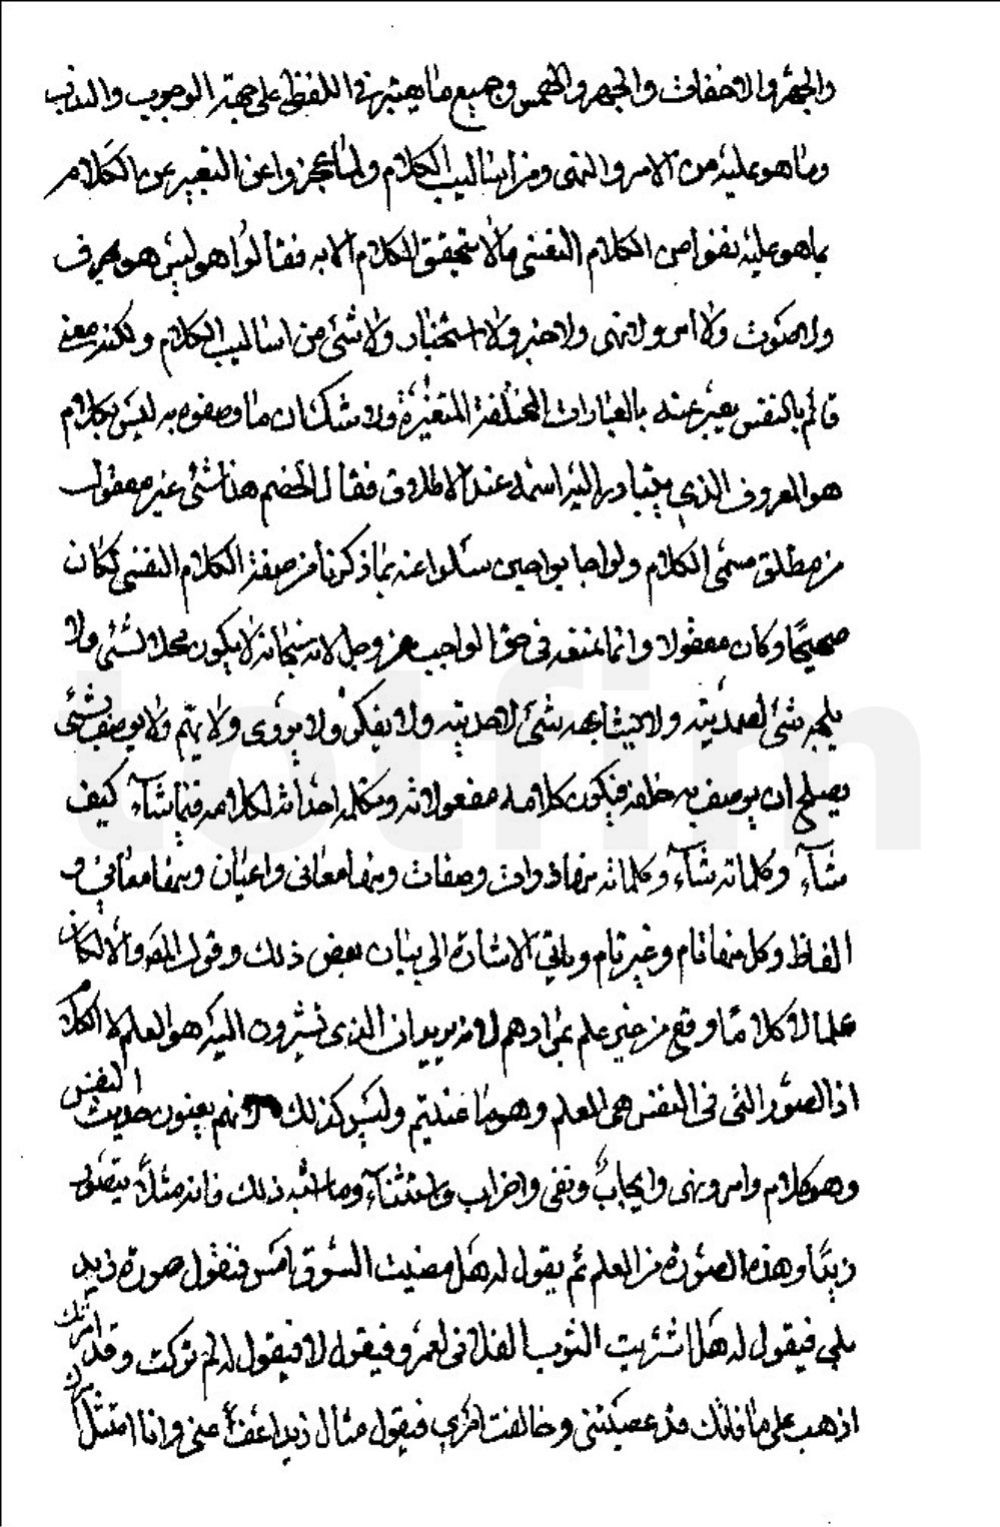 والجهر والاخفات والجهر والهمس وجميع ما يعتبر في اللفظ على جهة الوجوب والندب
وما هو عليه من الامر والنهى ومن اساليب الكلام ولما عجزوا عن التعبير عن الكلام
بما هو عليه نفوا من الكلام النفسى ما لا يتحقق الكلام الا به فقالوا هو ليس هو بحرف
ولا صوت ولا امر ولا نهى ولا خبر ولا استخبار ولا شئ من اساليب الكلام ولكنه معنى
قائم بالنفس يعبر عنه بالعبارات المختلفة المتغيرة ولا شك ان ما وصفوه به ليس بكلام
هو المعروف الذي يتبادر اليه اسمه عند الاطلاق فقال الخصم هذا شئ غير معقول
من مطلق مسمى الكلام ولو اجابوا حين سئلوا عنه بما ذكرنا من صفة الكلام النفسى لكان
صحيحًا وكان معقولا وانما نمنعه في حق الواجب عز وجل لانه سبحانه لا يكون محلا لشئ ولا
يلجه شئ لصمديته ولا يشابهه شئ لاحديته ولا يفكر ولا يروى ولا يهم ولا يوصف بشئ
يصلح ان يوصف به خلقه فيكون كلامه مفعولاته وتكلمه احداثه لكلامه فيما شآء كيف
شآء وكلماته شآء وكلماته منها ذوات وصفات ومنها معانى واعيان ومنها معانى و
الفاظ وكل منها تام وغير تام وياتي الاشارة الى بيان بعض ذلك وقول المص والا لكان
علما لا كلاما وقع من غير علم بمرادهم لانه يريد ان الذى تشيرون اليه هو العلم لا الكلام
اذ الصور التى فى النفس هى العلم وهو ما عنيتم وليس كذلك لانهم يعنون حديث النفس
وهو كلام وامر ونهى وايجاب ونفى واضراب واستثنآء وما اشبه ذلك فانه مثلاً يتصور
زيدًا وهذه الصورة من العلم ثم يقول له هل مضيت السوق امس فتقول صورة زيد
بلى فيقول له هل اشتريت الثوب الفلانى لعمرو فيقول لا فيقول له لم تركت وقد امرتك
اذهب على ما فاتك قد عصيتنى وخالفت امرى فيقول مثال زيد اعف عنى وانا امتثل امرك